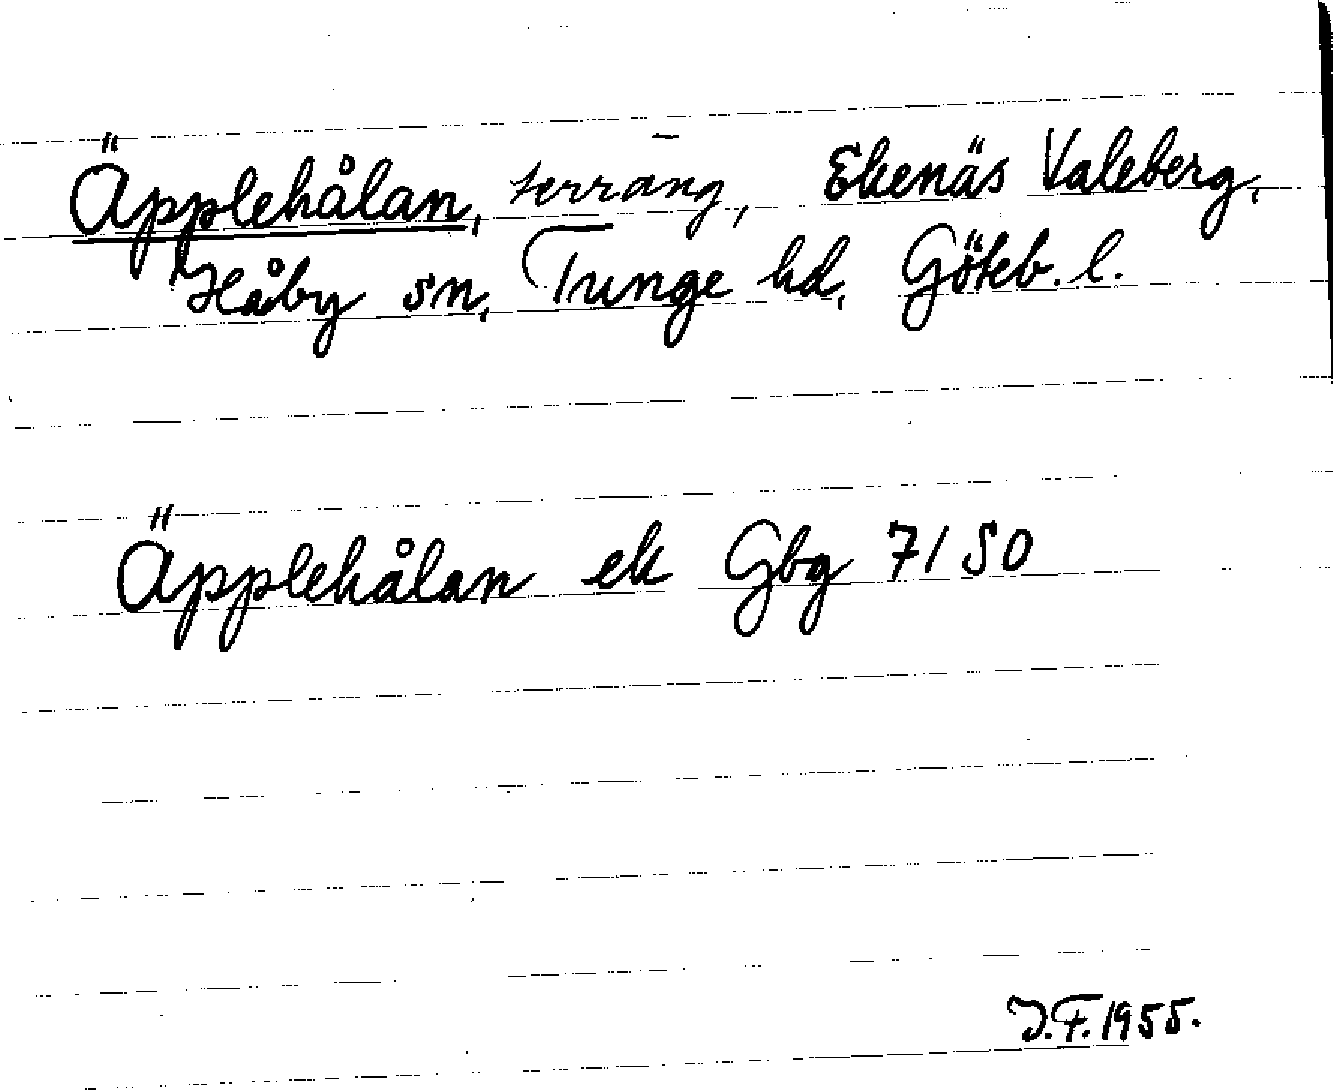 Äpplehålan, terräng, Ekenäs Valeberg,
Håby sn, Tunge hd, Göteb. l.
Äpplehålan ek Gbg 7/50
J.F. 1955.